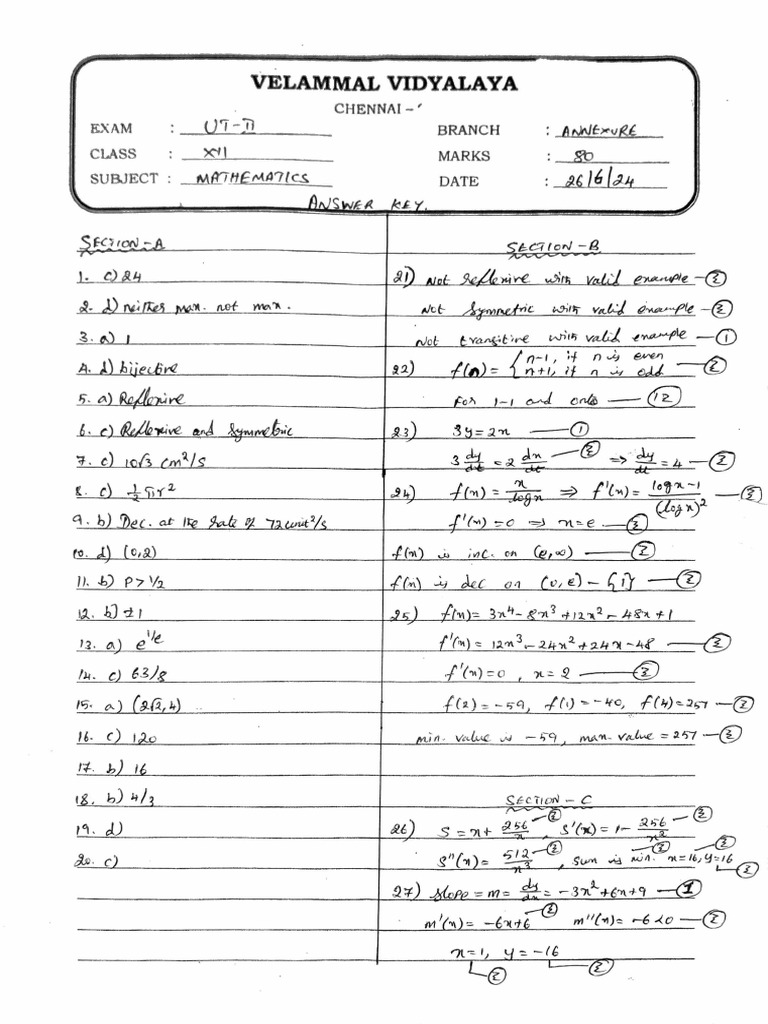 VELAMMAL VIDYALAYA
CHENNAI –
EXAM : UT-II
BRANCH : ANNEXURE
CLASS : XII
MARKS : 80
SUBJECT : MATHEMATICS
DATE : 26/6/24
ANSWER KEY.
SECTION-A
1. c) 24
2. d) neither max. not max.
3. a) 1
4. d) bijective
5. a) Reflexive
6. c) Reflexive and Symmetric
7. c) 10√3 cm²/S
8. c) ½πr²
9. b) Dec. at the rate of 72 unit²/s
10. d) (0,2)
11. b) P > 1/2
12. b) ±1
13. a) e^{1/e}
14. c) 63/8
15. a) (2√2, 4)
16. c) 120
17. b) 16
18. b) 4/3
19. d)
20. c)
SECTION-B
21) Not reflexive with valid example – ½
Not Symmetric with valid example – ½
Not transitive with valid example – 1
22) f(n) = { n-1, if n is even
n+1, if n is odd – ½
For 1-1 and onto – 1½
23) 3y = 2x – 1
3 dy/dt = 2 dx/dt – ½ ⇒ dy/dt = 4 – ½
24) f(x) = x/log x ⇒ f'(x) = (log x – 1)/(log x)² – ½
f'(x) = 0 ⇒ x = e – ½
f(x) is inc. on (e, ∞) – ½
f(x) is dec on (0, e) – {1} – ½
25) f(x) = 3x⁴ – 8x³ + 12x² – 48x + 1
f'(x) = 12x³ – 24x² + 24x – 48 – ½
f'(x) = 0, x = 2 – ½
f(2) = –59, f(1) = –40, f(4) = 257 – ½
min. value is –59, max. value = 257 – ½
SECTION-C
26) S = x + 256/x – ½, S'(x) = 1 – 256/x² – ½
S''(x) = 512/x³ – ½, sum is min. – ½ x = 16, – ½ y = 16 – ½
27) slope = m = dy/dx = –3x² + 6x + 9 – 1
m'(x) = –6x + 6 – ½ m''(x) = –6 < 0 – ½
x = 1, – ½ y = –16 – ½